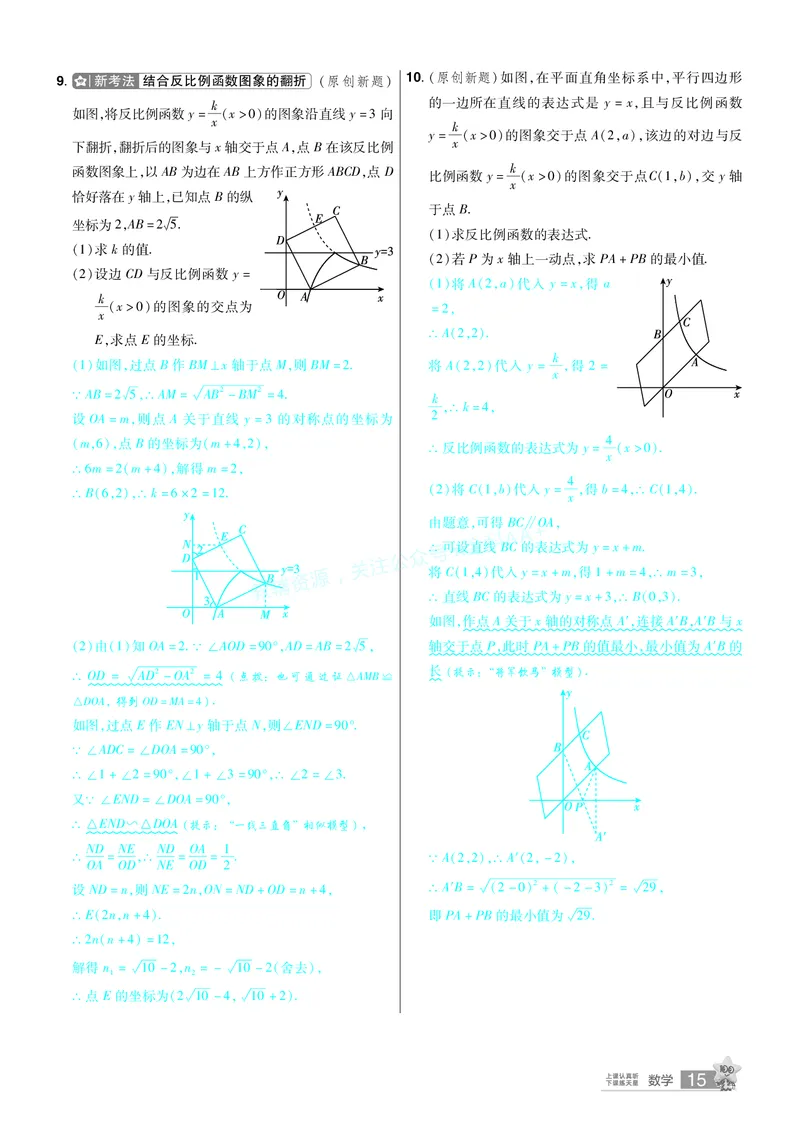 9. 新考法 结合反比例函数图象的翻折 (原创新题)
如图,将反比例函数 y=k/x(x>0)的图象沿直线 y=3 向
下翻折,翻折后的图象与 x 轴交于点 A,点 B 在该反比例
函数图象上,以 AB 为边在 AB 上方作正方形 ABCD,点 D
恰好落在 y 轴上,已知点 B 的纵
坐标为 2,AB=2√5.
(1)求 k 的值.
(2)设边 CD 与反比例函数 y=
k/x(x>0)的图象的交点为
E,求点 E 的坐标.
y
C
E
D
y=3
B
O A x
(1)如图,过点 B 作 BM⊥x 轴于点 M,则 BM=2.
∵AB=2√5,∴AM=√(AB²-BM²)=4.
设 OA=m,则点 A 关于直线 y=3 的对称点的坐标为
(m,6),点 B 的坐标为(m+4,2),
∴6m=2(m+4),解得 m=2,
∴B(6,2),∴k=6×2=12.
y
C
E
N
2
D
1
y=3
B
3
O A M x
(2)由(1)知 OA=2.∵∠AOD=90°,AD=AB=2√5,
∴OD=√(AD²-OA²)=4(点拨:也可通过证△AMB≌
△DOA,得到 OD=MA=4).
如图,过点 E 作 EN⊥y 轴于点 N,则∠END=90°.
∵∠ADC=∠DOA=90°,
∴∠1+∠2=90°,∠1+∠3=90°,∴∠2=∠3.
又∵∠END=∠DOA=90°,
∴△END∽△DOA(提示:“一线三直角”相似模型),
∴ND/OA=NE/OD,∴ND/NE=OA/OD=1/2.
设 ND=n,则 NE=2n,ON=ND+OD=n+4,
∴E(2n,n+4).
∴2n(n+4)=12,
解得 n₁=√10-2,n₂=-√10-2(舍去),
∴点 E 的坐标为(2√10-4,√10+2).
10. (原创新题)如图,在平面直角坐标系中,平行四边形
的一边所在直线的表达式是 y=x,且与反比例函数
y=k/x(x>0)的图象交于点 A(2,a),该边的对边与反
比例函数 y=k/x(x>0)的图象交于点C(1,b),交 y 轴
于点 B.
(1)求反比例函数的表达式.
(2)若 P 为 x 轴上一动点,求 PA+PB 的最小值.
(1)将 A(2,a)代入 y=x,得 a
=2,
∴A(2,2).
将 A(2,2)代入 y=k/x,得 2=
k/2,∴k=4,
y
C
B
A
O x
∴反比例函数的表达式为 y=4/x(x>0).
(2)将 C(1,b)代入 y=4/x,得 b=4,∴C(1,4).
由题意,可得 BC∥OA,
∴可设直线 BC 的表达式为 y=x+m.
将 C(1,4)代入 y=x+m,得 1+m=4,∴m=3,
∴直线 BC 的表达式为 y=x+3,∴B(0,3).
如图,作点 A 关于 x 轴的对称点 A′,连接 A′B,A′B 与 x
轴交于点 P,此时 PA+PB 的值最小,最小值为 A′B 的
长(提示:“将军饮马”模型).
y
C
B
A
O P x
A′
∵A(2,2),∴A′(2,-2),
∴A′B=√((2-0)²+(-2-3)²)=√29,
即 PA+PB 的最小值为√29.
上课认真听
下课练天星
数学 15